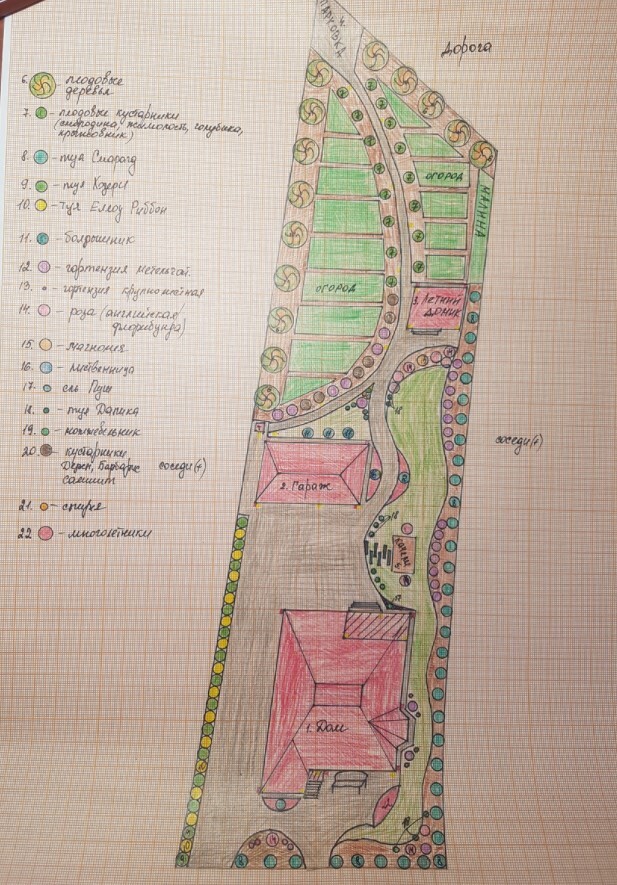 4. ПАРКОВКА
Дорога
6. - плодовые
деревья
7. - плодовые кустарники
(смородина, жимолость, голубика,
крыжовник)
8. - туя Смарагд
9. - туя
10. - Туя Еллоу Риббон
11. - боярышник
12. - гортензия метельчат.
13. - гортензия крупнолистная
14. - роза (английская/
флорибунда)
15. - магнолия
16. - лиственница
17. - ель
18. - туя Даника
19. - можжевельник
20. - кустарники
Дерен, Барбарис
самшит
21. - спирея
22 - многолетники
ОГОРОД
МАЛИНА
ОГОРОД
3. ЛЕТНИЙ
ДОМИК
соседи(+)
соседи(+)
2. Гараж
Качели
5
1. Дом